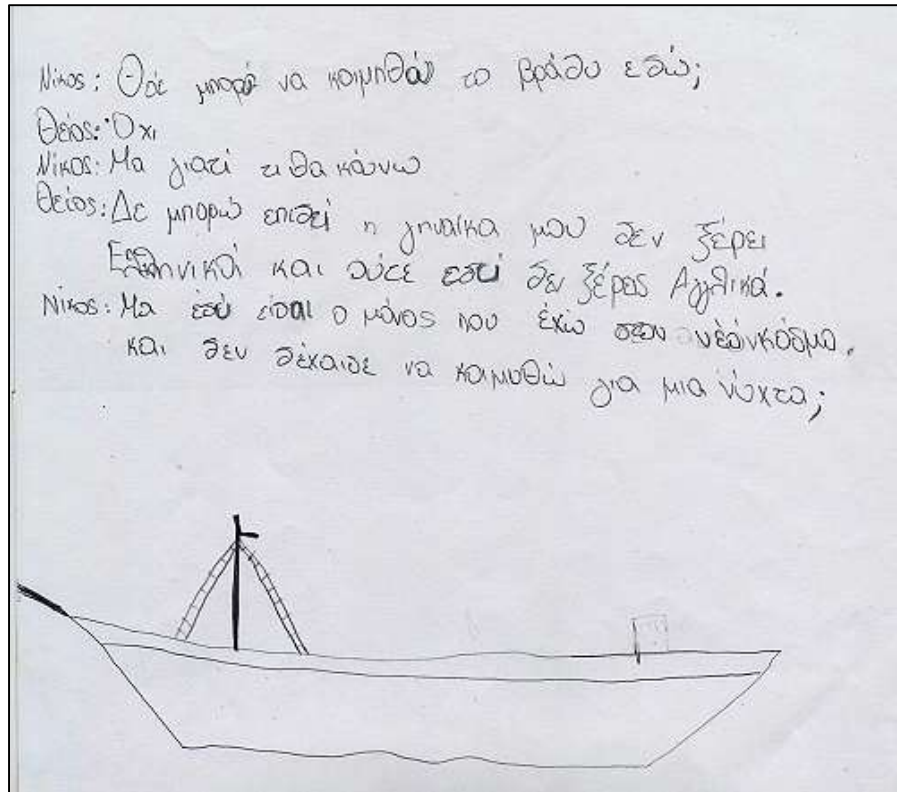 Νίκος: Θείε μπορώ να κοιμηθώ το βράδυ εδώ;
Θείος: Όχι
Νίκος: Μα γιατί τι θα κάνω
Θείος: Δε μπορώ επιδεί η γηναίκα μου δεν ξέρει
Ελληνικά και ούτε εσύ δεν ξέρεις Αγγλικά.
Νίκος: Μα εσύ είσαι ο μόνος που έχω στον νέον κόσμο.
και δεν δέχαισε να κοιμυθώ για μια νύχτα;